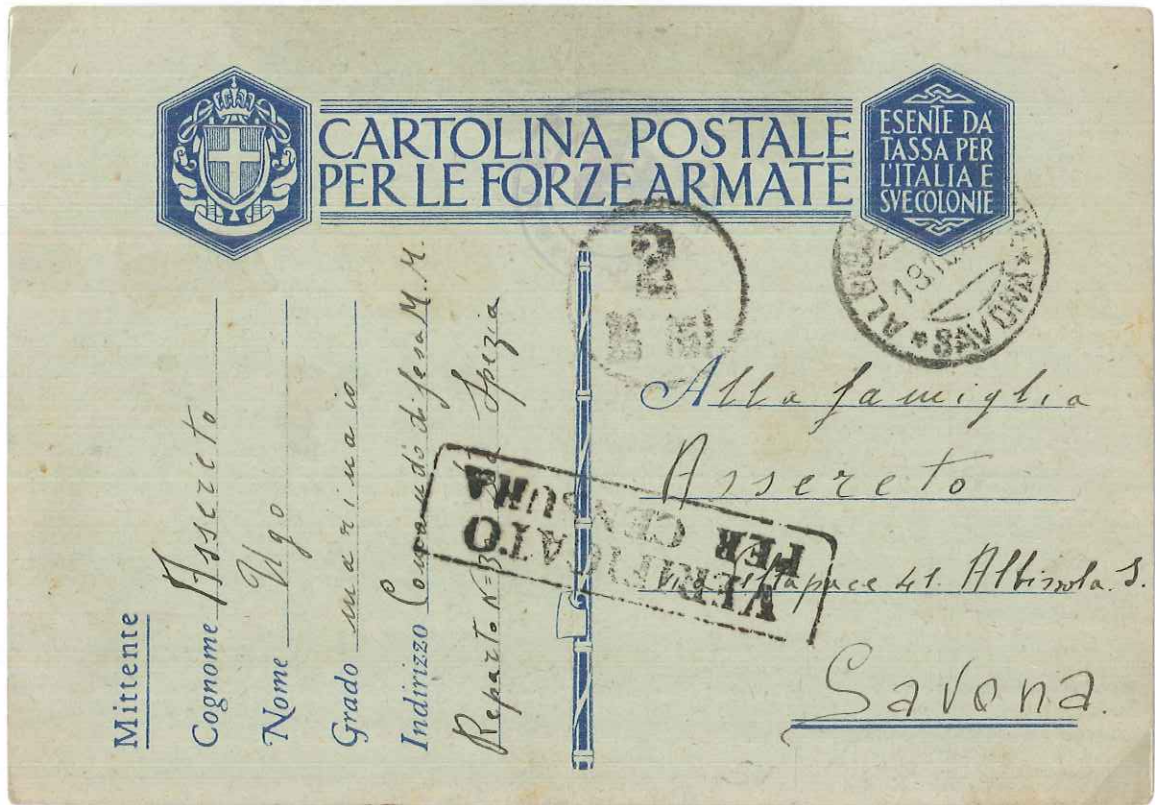 CARTOLINA POSTALE
PER LE FORZE ARMATE
ESENTE DA
TASSA PER
L'ITALIA E
SVE COLONIE
2
ALBIS
18
SAVONA
Mittente
Cognome Assereto
Nome Ugo
Grado marinaio
Indirizzo Comando difesa M. M.
Reparto N=3 Spezia
VERIFICATO
PER CENSURA
Alla famiglia
Assereto
41. Albissola. S.
Savona.